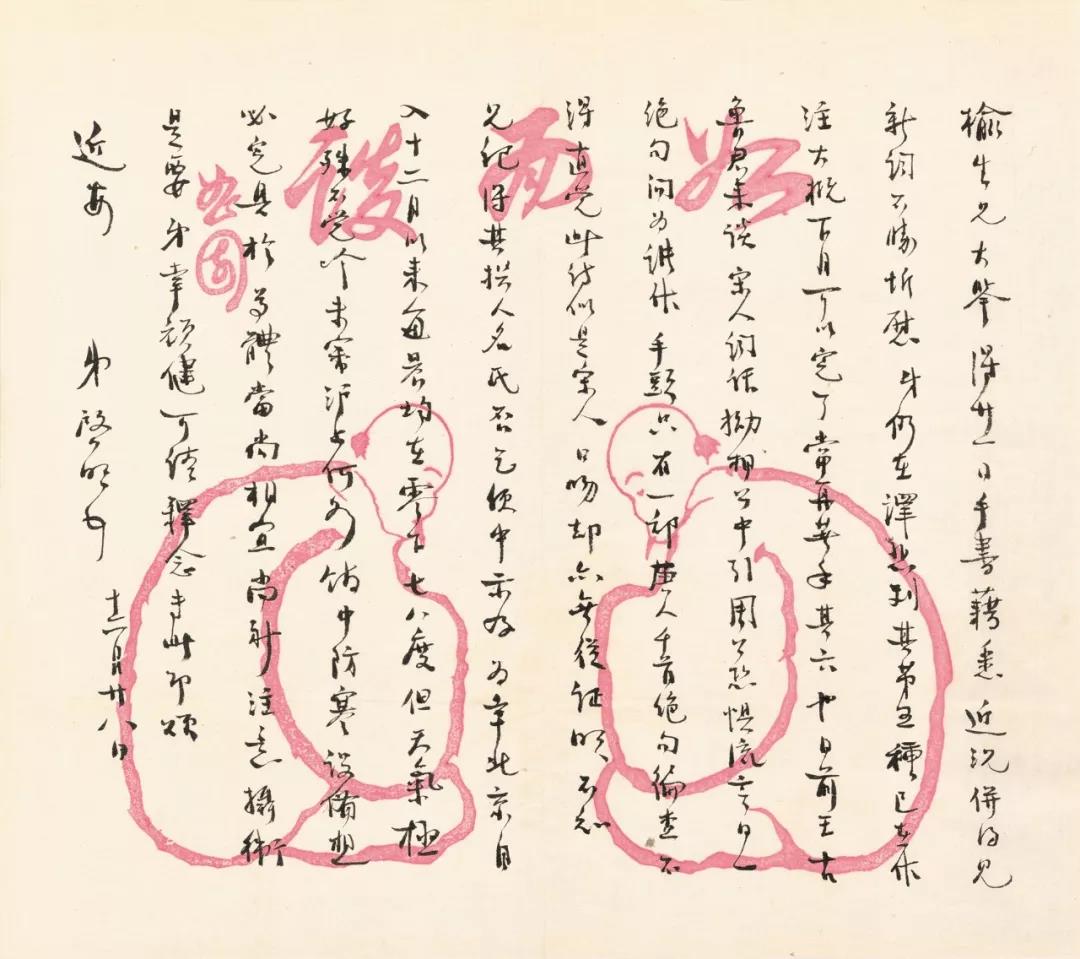 榆生兄大鑒 得廿一日手書藉悉近況併得見
新詞不勝忻慰 弟仍在譯悲劇其第五種已在作
注大概下月可以完了當再著手其六也 日前王古
魯君來談宋人詞話拗相公中引用公恐懼流言日一
絕句問為誰作 手頭只有一部唐人千首絕句徧查不
得直覺此詩似是宋人口吻却亦無從証明不知
兄記得其撰人名氏否乞便中示及為幸北京自
入十二月以來每晨均在零下七八度但天氣極
好殊不覺冷未審滬上何如館中防寒設備想
必完具於尊體當尚相宜尚祈注意攝衛
是要弟幸頑健可 釋念专此即頌
近安 弟啓明 十二月廿八日
如面談